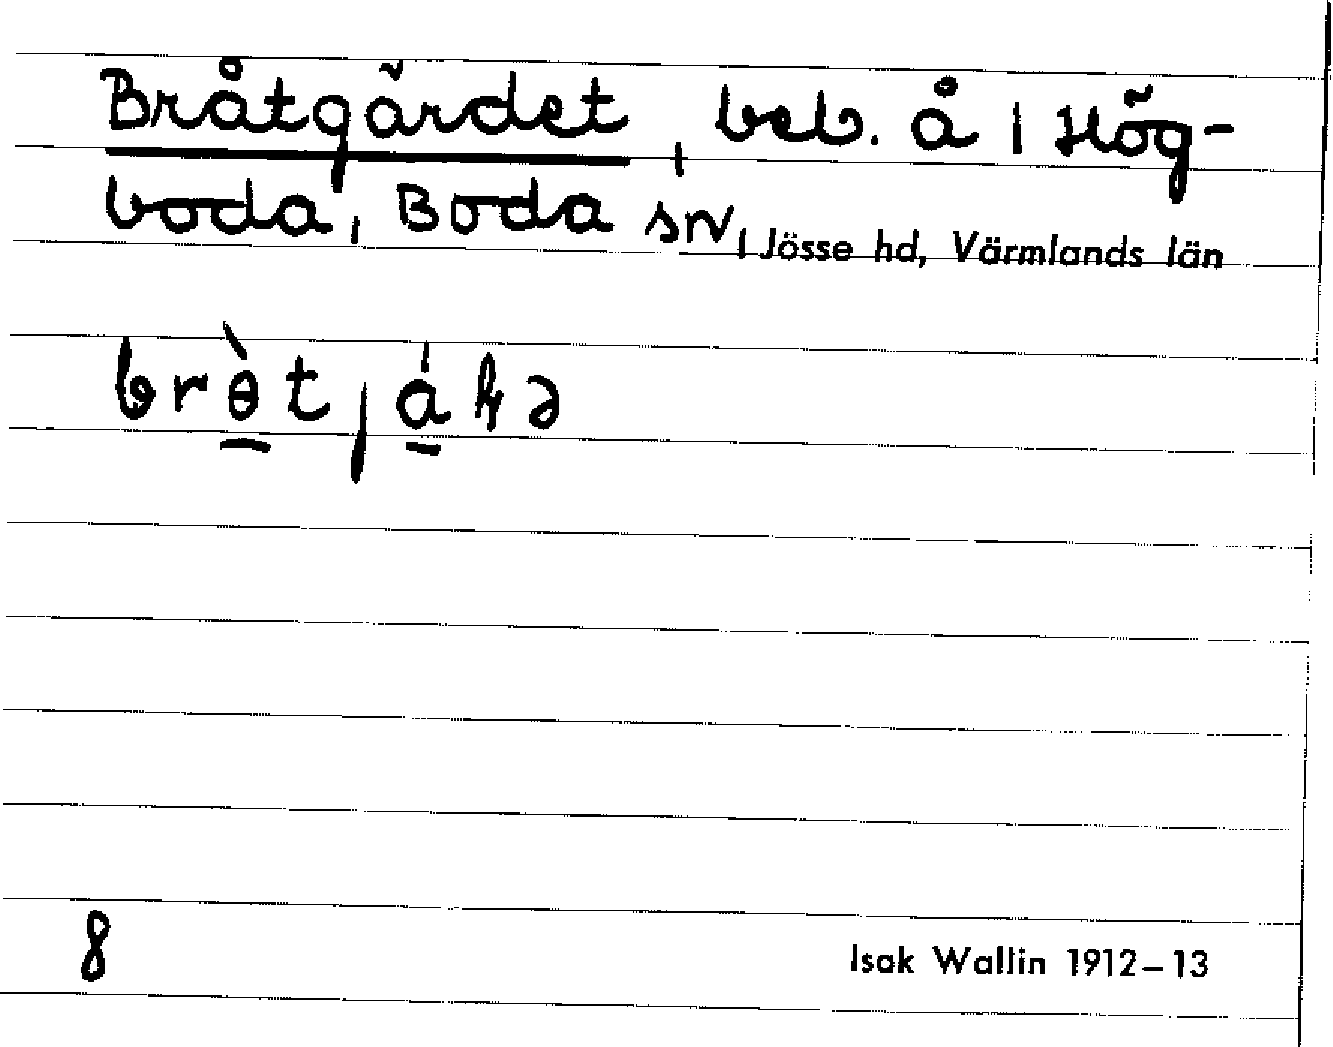 Bråtgärdet, beb. å 1 Hög-
boda, Boda sn, Jösse hd, Värmlands län
8
Isak Wallin 1912–13